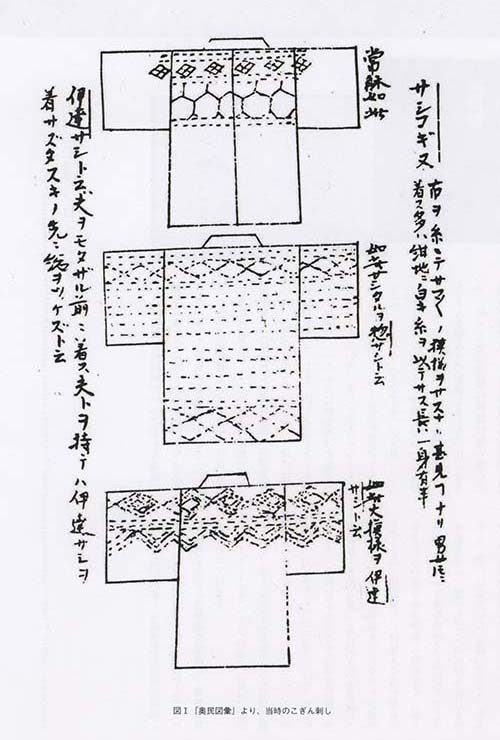 サシコギヌ
布ヲ糸ニテサマ〱ノ模様ヲサス甚見フナリ男女共ニ
着ス多ハ紺地ニ白キ糸ヲ以テサス長一身有半
常躰如此
如此サシタルヲ惣サシト云
如此大模様ヲ伊達
サシト云
伊達サシト云夫ヲモタザル前ニ着ス夫トヲ持テハ伊達サシヲ
着サズタスキノ先ニ総ヲツケズト云
図Ⅰ『奥民図彙』より、当時のこぎん刺し